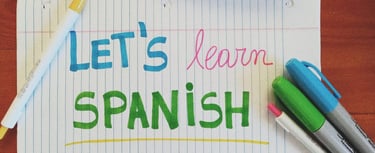 LET'S learn
SPANiSH